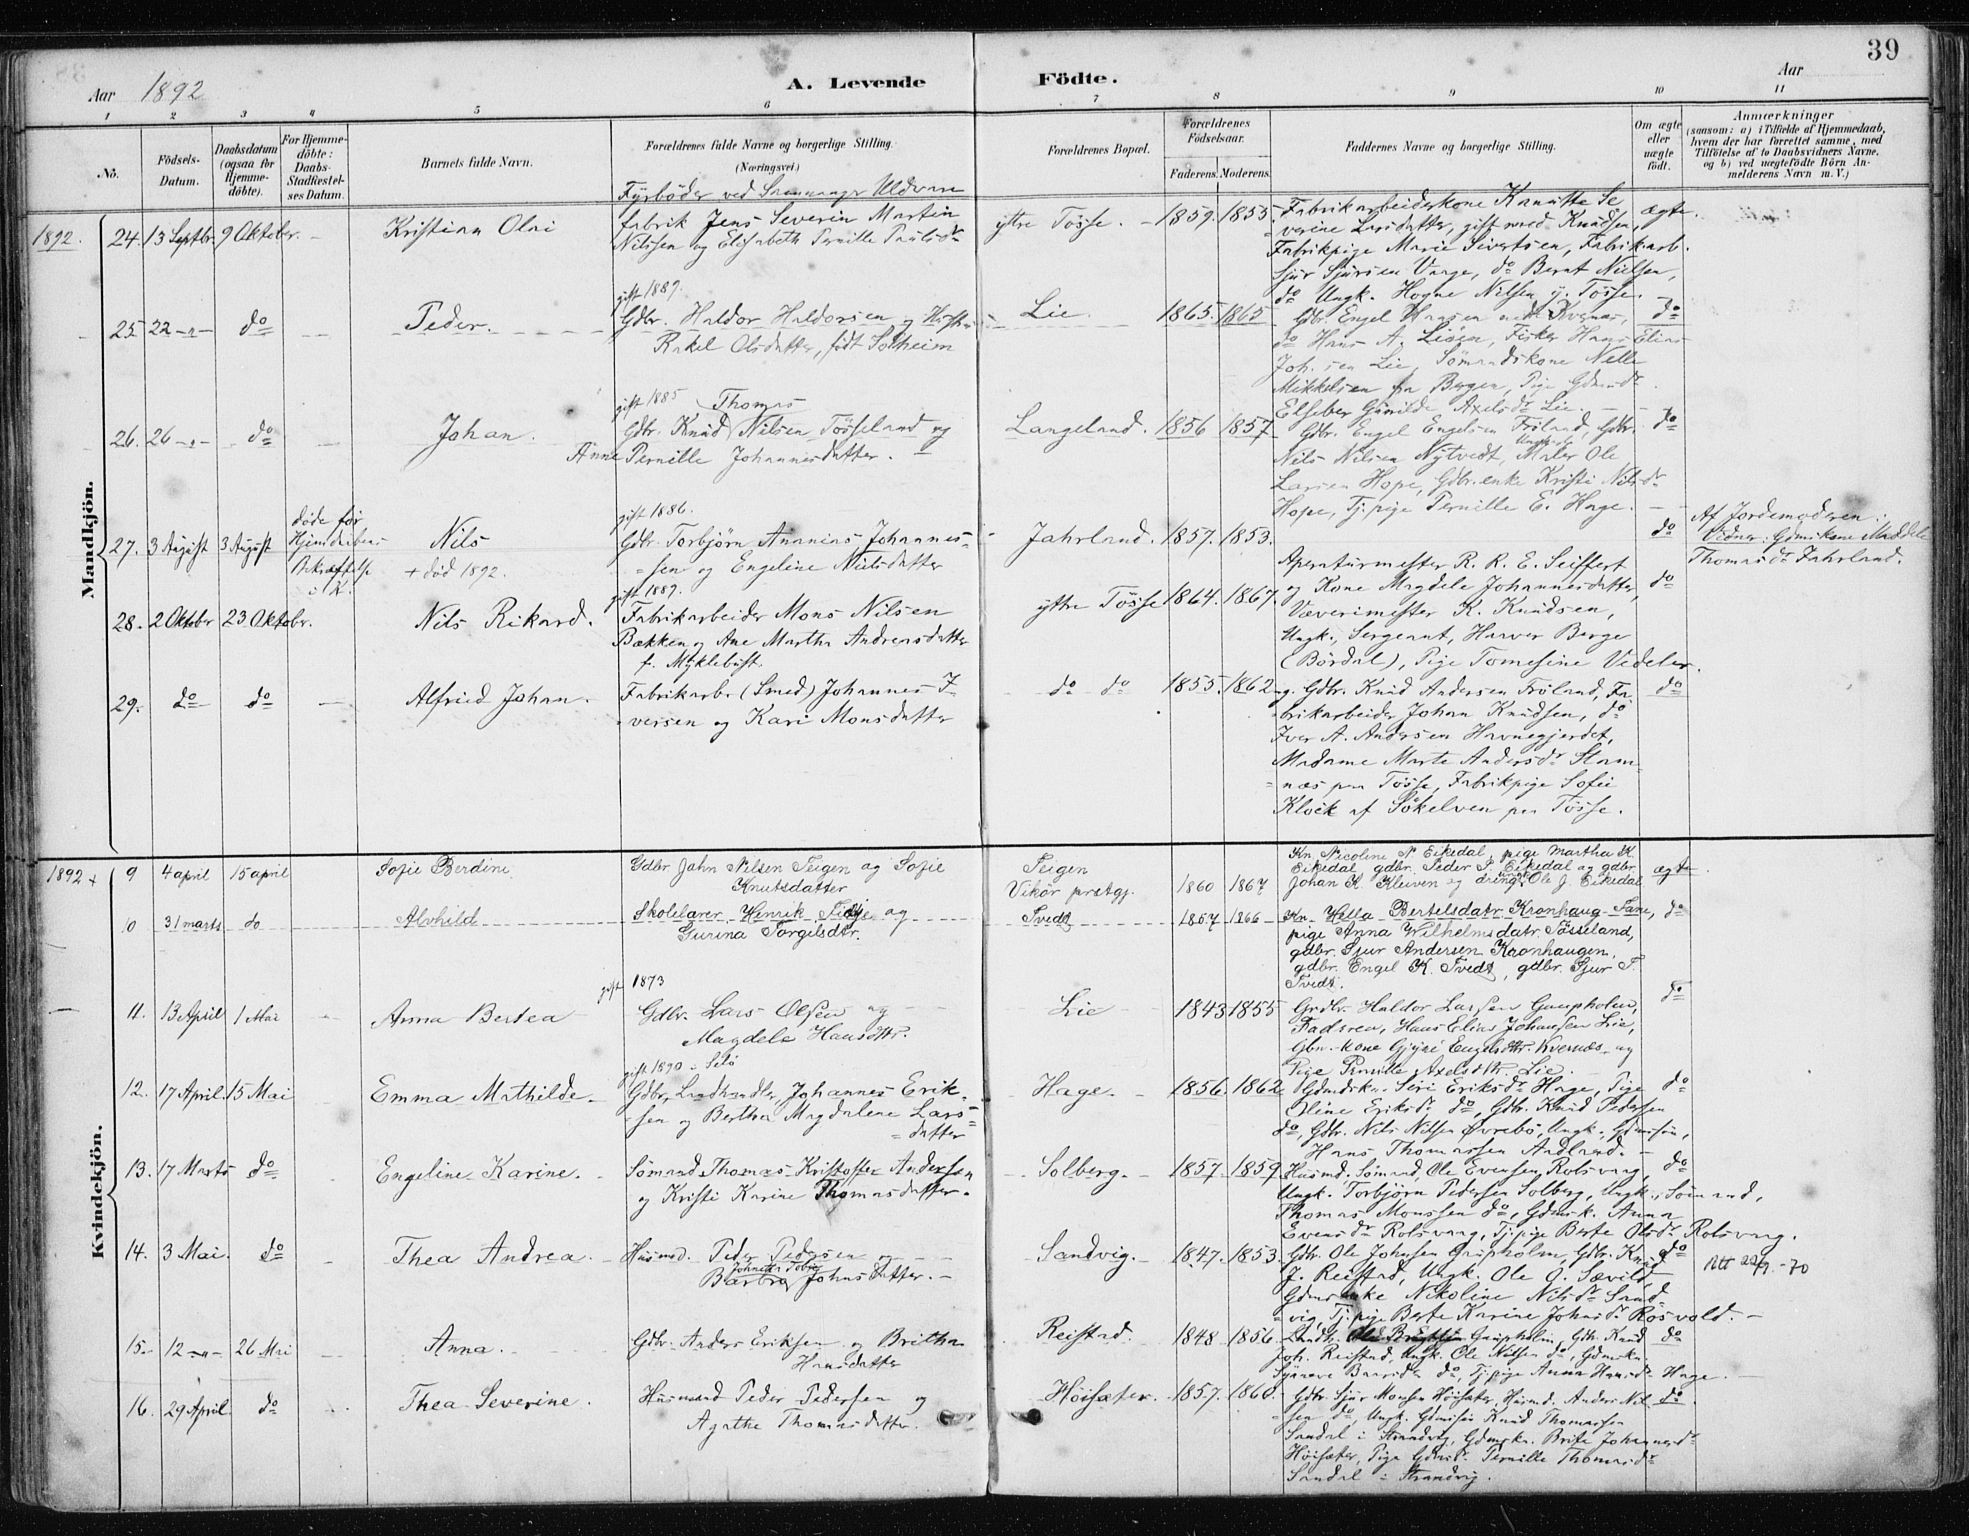 39
Aar 1892
A. Levende Födte.
Aar
1 2 3 4 5 6 7 8 9 10 11
No.
Födsels-Datum.
Daabsdatum (ogsaa for Hjemme-döbte).
For Hjemme-döbte: Daabs-Stadfæstel-ses Datum.
Barnets fulde Navn.
Forældrenes fulde Navne og borgerlige Stilling. (Næringsvei.)
Forældrenes Bopæl.
Forældrenes Födselsaar.
Faderens. Moderens.
Faddernes Navne og borgerlige Stilling.
Om ægte eller uægte födt.
Anmærkninger
(saasom: a) i Tilfælde af Hjemmedaab, hvem der har forrettet samme, med Tilföielse af to Daabsvidners Navne, og b) ved uægtefödte Börn An-melderens Navn m. V.)
Mandkjön.
1892. 24. 13 Septbr. 9 Oktober. Kristian Olai
Fyrböder ved Uldvare
fabrik Jens Severin Martin
Nilssen og Elisabeth Pernille Paulsdr
ytre Tösse. 1859. 1855
Fabrikarbeiderkone Kanutte Se
verine Larsdatter, gift med Knudsen,
Fabrikpige Marie Sivertsen, Fabrikarb.
Sjur Sjursen Vaage, do Bernt Nielsen,
do Ungk. Hogne Nilsen y. Tösse.
ægte.
25. 22 do Peder.
gift 1889.
Gdbr. Haldor Haldorsen og
Rakel Olsdatter, født Solheim
Lie. 1865. 1865
Gdbr. Engel Kvernes,
do Hans A. Liöen, Fisker Hans Elias
Joh.sen Lie, Sömandskone Nelle
Mikkelsen fra Bergen, Pige Gdmdr
Elseber Gunilde Axelsdr Lie.
do
26. 26 do Johan.
gift 1885 Thomas
Gdbr. Knud Nilsen Tösseland og
Anne Pernille Johannesdatter.
Langeland. 1856 1857
Gdbr. Engel Engelsen Fröland, Gdbr.
Nils Nilsen Nytvedt, Maler Ole
Larsen Hope, Gdbr.enke Kristi Nilsdr
Hope, Tj.pige Pernille E. Hage.
do
27. 3 August 3 August
døde før
i K.
Nils
+ död 1892.
gift 1886.
Gdbr. Torbjörn Ananias Johannes-
sen og Engeline Nielsdatter
Jahrland. 1857. 1853.
do
Af Jordemoderen.
Vidner: Gdmskone Maddele
Thomasdr Jahrland.
28. 2 Oktober 23 Oktober. Nils Rikard.
gift 1889.
Fabrikarbeider Mons Nilsen
Bækken og Ane Martha Andreasdatter
f. Myklebust.
ytre Tösse 1864. 1867.
Aperaturmester R. R. E. Seiffert
og Kone Magdele Johannesdatter,
Væverimester K. Knudsen,
Ungk., Sergeant, Haaver Berge
(Bördal), Pige Tomesine Vedeler.
do
29. do do Alfried Johan.
Fabrikarbr (Smed) Johannes I-
versen og Kari Monsdatter
do do 1855. 1862
g. Gdbr. Knud Andersen Fröland, Fa-
brikarbeider Johan Knudsen, do
Iver A. Andersen Havnegjerdet,
Madame Marte Andersdr Stam-
næs paa Tösse, Fabrikpige Sofie
Klock af Sökelven paa Tösse.
do
Kvindekjön.
1892 + 9 4 april 15 april Sofie Berdine
Gdbr Jahn Nilsen Teigen og Sofie
Knutsdatter
Teigen
Vikör præstgj. 1860 1867
Kn. Nicoline N. Eikedal, pige Martha K.
Eikedal gdbr. Peder S. Eikedal og gdbr.
Johan K. Kleiven og dreng Ole J. Eikedal
ægte
10 31 marts do Alvhild
Skolelærer Henrik og
Gurina Torgilsdtr.
Tvedt 1867 1866
Kn. Bertelsdatr. Kronhaug Fane,
pige Anna Wilhelmsdatr. Tösseland,
gdbr. Sjur Andersen Kronhaugen,
gdbr. Engel K. Tvedt, gdbr. Sjur T.
Tvedt.
do
11. 13 April 1 Mai Anna Bertea
gift 1873
Gdbr. Lars Olsen og
Magdela Hansdtr.
Lie 1843 1855
Grdbr. Haldor Larsen Gaupholm,
Hans Elias Johansen Lie,
Gbr.-kone Engelsdtr. Kvernæs, og
Pige Pernille Axelsdtr. Lie.
do
12. 17 April 15 Mai Emma Mathilde.
gift 1890
Gdbr, Landhandler, Johannes Erik-
sen og Bertha Magdalene Lars-
datter
Hage. 1856. 1862
Gdmdskn. Seri Eriksdr Hage, Pige
Oline Eriksdr do, Gdbr. Knud Pedersen
do, Gdbr. Nils Nilsen Övrebö, Ungk., Gdmsön,
Hans Thomassen Aadland.
do
13. 17 Marts do Engeline Karine.
Sömand Thomas Kristoffer Andersen
og Kristi Karine Thomasdatter.
Solberg. 1857. 1859
Husmd. Sömand, Ole Evensen Rolsvaag,
Ungk. Torbjörn Pedersen Solberg, Ungk., Sömand,
Thomas Monssen do, Gdmsk. Anna
Evensdr Rolsvaag, Tj.pige Berte Olsdr Rolsvaag.
do
14. 3 Mai. do Thea Andrea.
Husmd. Peder Pedersen og
Barbro Johnsdatter.
Sandvig. 1847. 1853.
Gdbr. Ole Johnsen Gaupholm, Gdbr. Knud
J. Reistad, Ungk. Ole O. Sævild
Gdmsenke Nikoline Nilsdr Sand-
vig, Tj.pige Berte Karine Johnsdr Rosvold.
do
15. 12 26 Mai Anna.
Gdbr. Anders Eriksen og Britha
Hansdatter
Reistad. 1848. 1856.
Gaupholm, Gdbr. Knud
Joh. Reistad, Ungk. Ole Nilsen do, Gdmskn.
do, Tj.pige Anna Hansdr Hage.
do
16. 29 April. do Thea Severine.
Husmand Peder Pedersen og
Agathe Thomasdatter.
Höisæter. 1857. 1860.
Gdbr. Sjur Monsen Höisæter, Husmd. Anders Nil-
sen do, Ungk. Gdmsön Knud Thomassen
Sandal i Strandvig, Gdmskn. Brita Johannesdr
Höisæter, Pige Gdmdr. Pernille Thomasdr
Sandal i Strandvig.
do